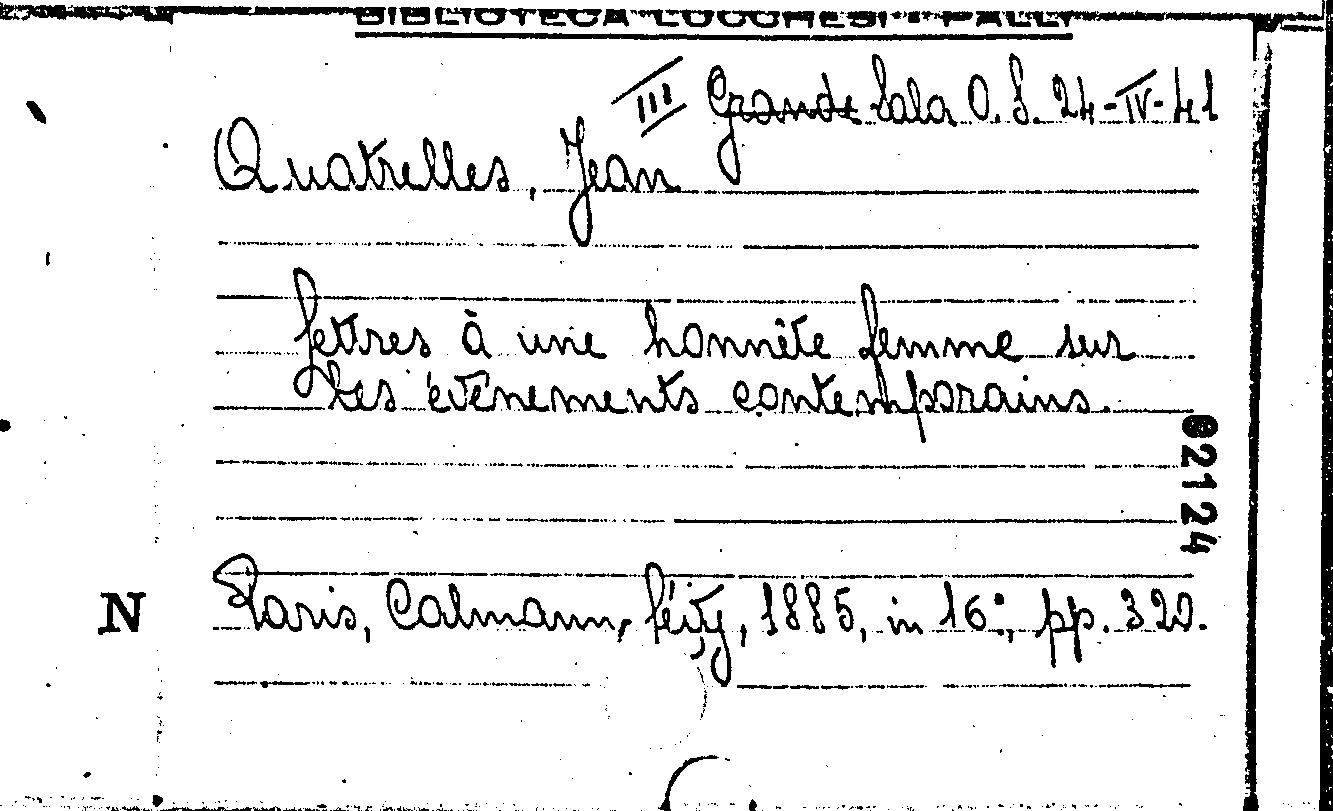 BIBLIOTECA LUCCHESI-PALLI
III Grande Sala O. S. 24-IV-41
Quatrelles, Jean
Lettres à une honnête femme sur
les évènements contemporains.
82124
N Paris, Calmann, Lévy, 1885, in 16°, pp. 320.